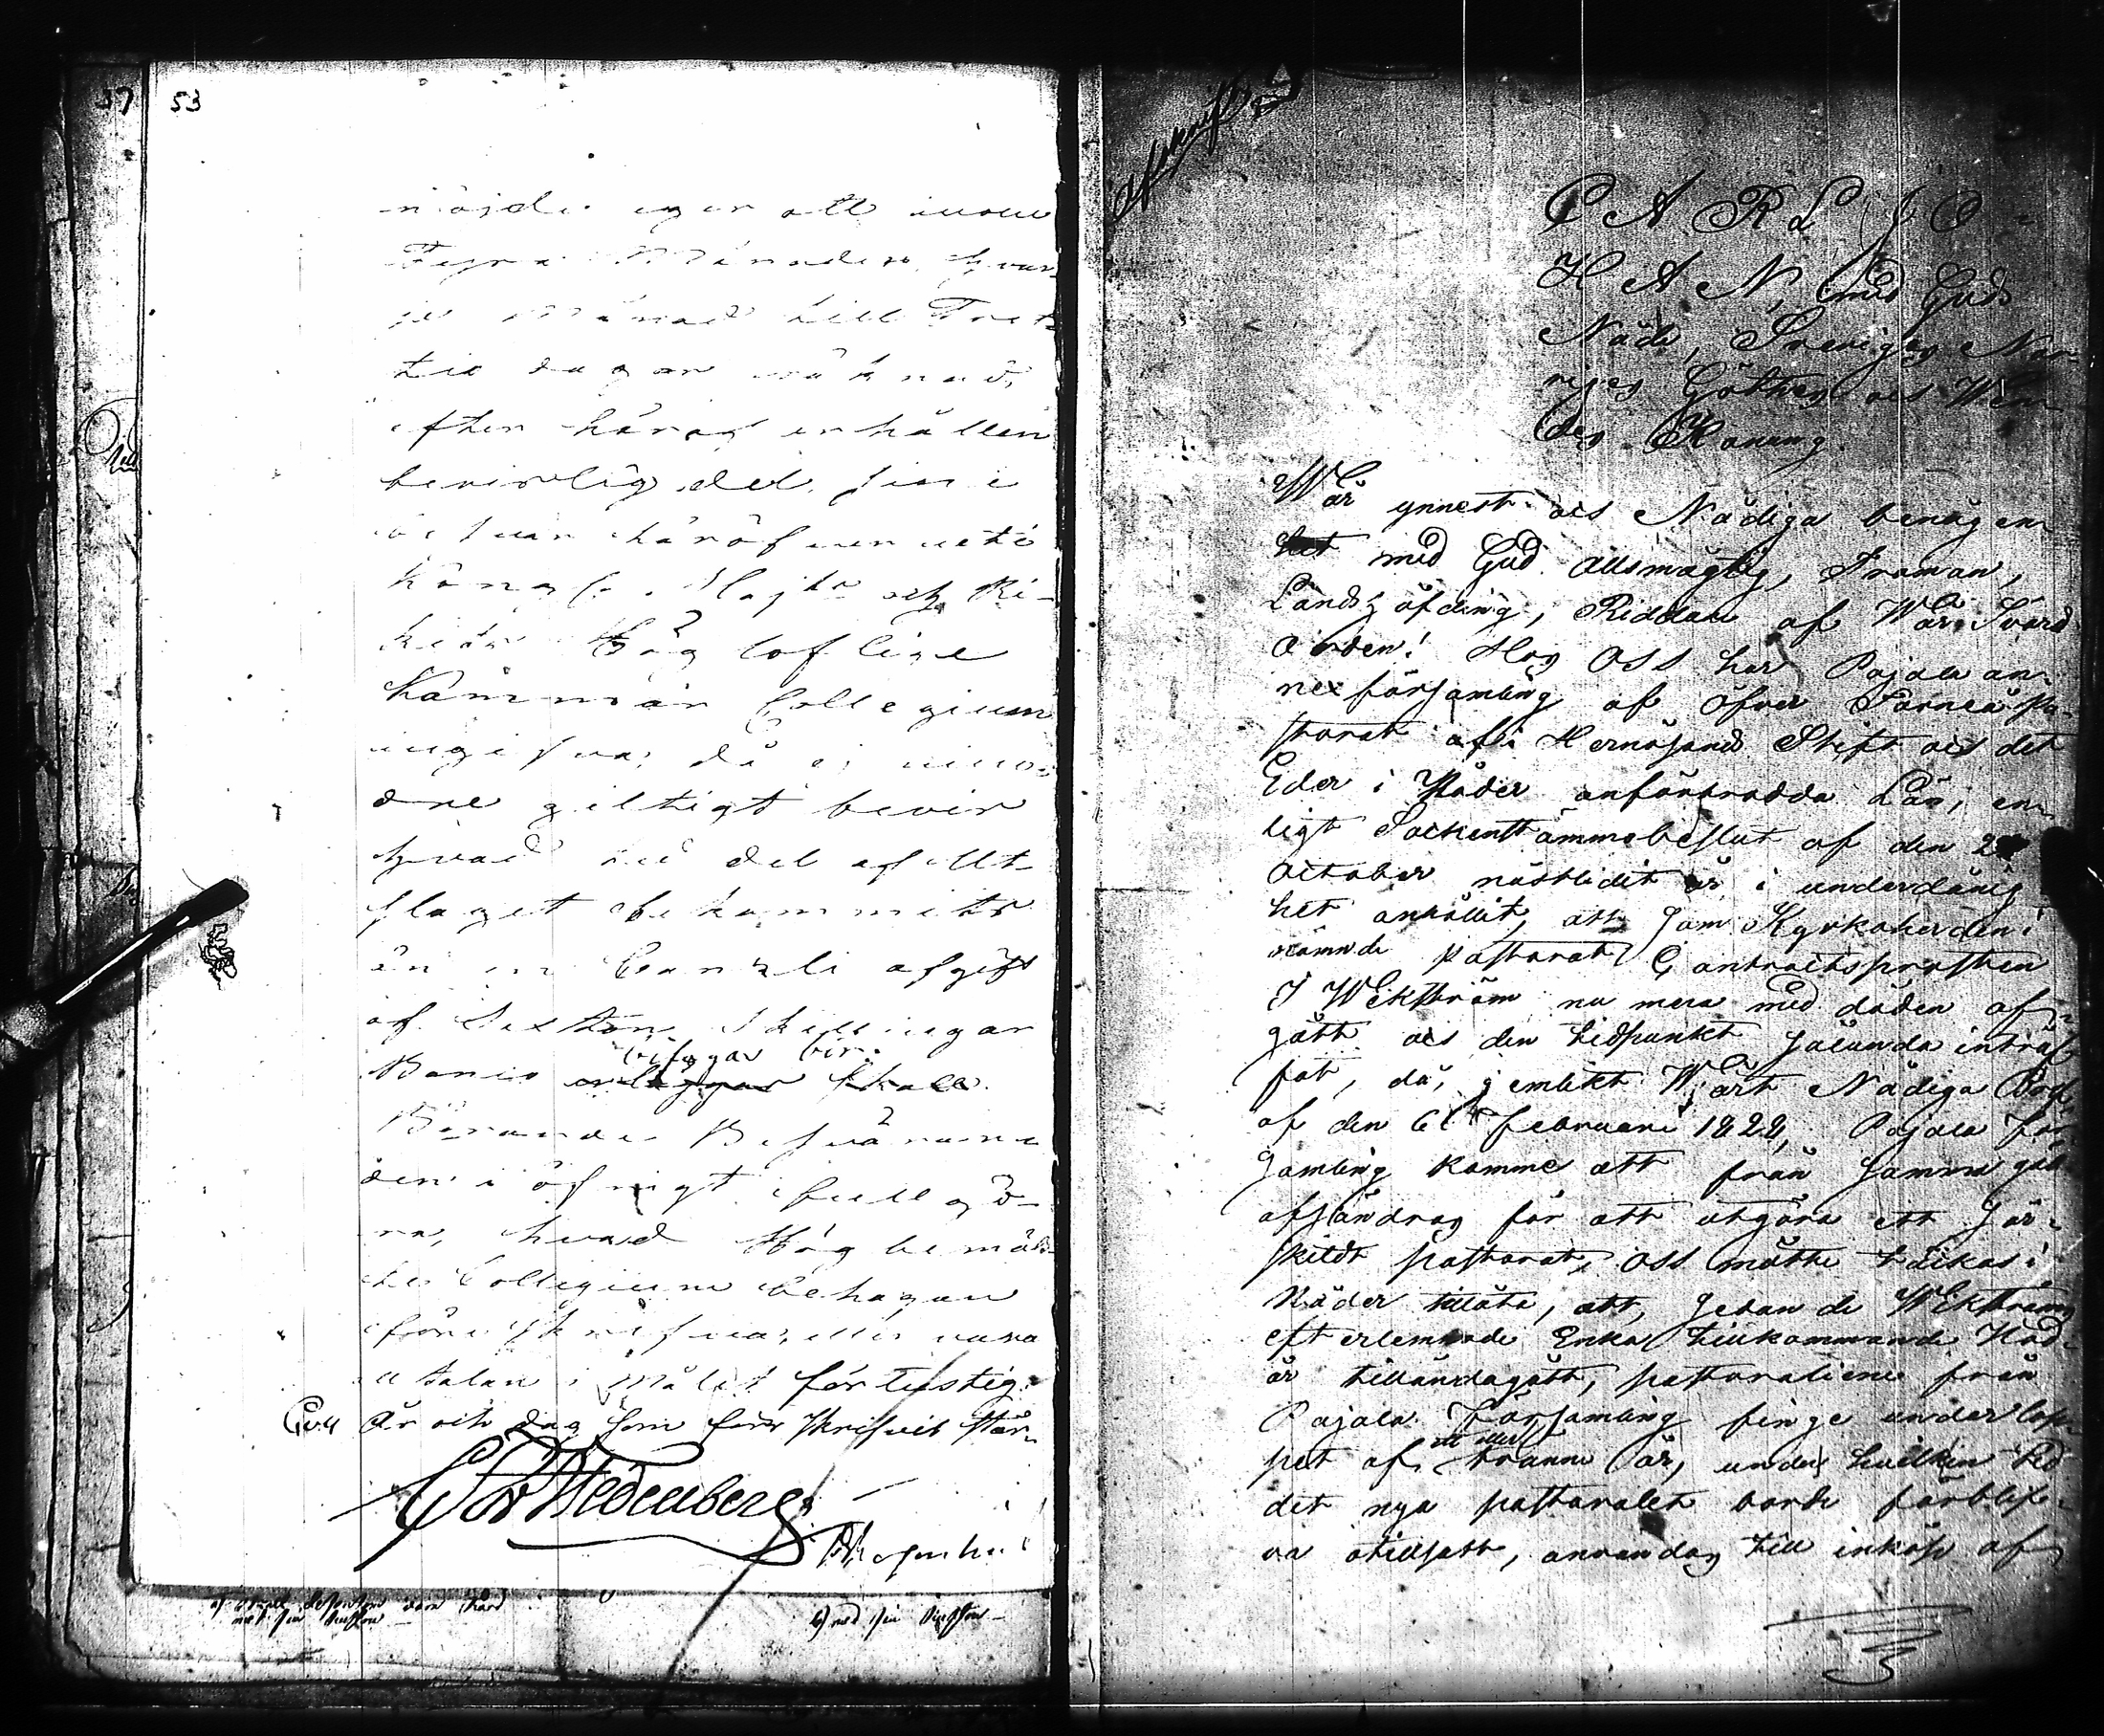 37 53
nöjde eger att inom
Fyra Månader, hvar
je Månad till Tret-
tio dagar räknad,
efter häraf erhållen
bevislig del, sine
besvär häröfver uti
Kongl. Majts och Ri-
kets Högloflige
Kammar Collegium
ingifva, då ej min-
dre giltigt bevis
hvad tid del af Ut-
slaget bekommits
än en Canzli afgift
af Sexton Skillingar
bifogas bör.
Banco erläggas skall.
Börande Besvärande
den i öfrigt fullgö-
ra, hvad Högbemäl-
te Collegium behagar
föreskrifva, eller vara
talan i målet förlustig.
År och dag som förr skrifvit står.
Afskrift
CARL JO-
HAN, med Guds
Nåde, Sveriges Nor-
riges Göthes och Wen-
des Konung.
Wår ynnest och Nådiga benägen-
het med Gud Allsmägtig, Troman,
Landshöfding, Riddare af Wår Svärds
Orden! Hos OSS har Pajala an-
nexförsamling af Öfver Torneå Pa-
storat af Hernösands Stift och det
Eder i Nåder anförtrodda Län, en-
ligt Sockenstämmobeslut af den 2
October nästledit år i underdånig-
het anhållit, att som Kyrkoherden i
nämnde pastorat Contractsprosten
J Wikström nu mera med döden af-
gått och den tidpunkt sålunda inträf-
fat, då, jemlikt Wårt Nådiga Bref
af den 6te Februarii 1828, Pajala För-
samling komme att från samma gäll
afsöndras för att utgöra ett sär-
skildt pastorat, OSS måtte täckas i
Nåder tillåta, att, sedan de Wikströms
efterlemnade Enka tillkommande Nåd-
år tilländagått, pastoralierne från
Pajala Församling finge under lop-
ett eller
pet af tvänne år, under hvilken tid
det nya pastoratet borde förblif-
va otillsatt, användas till inköp af